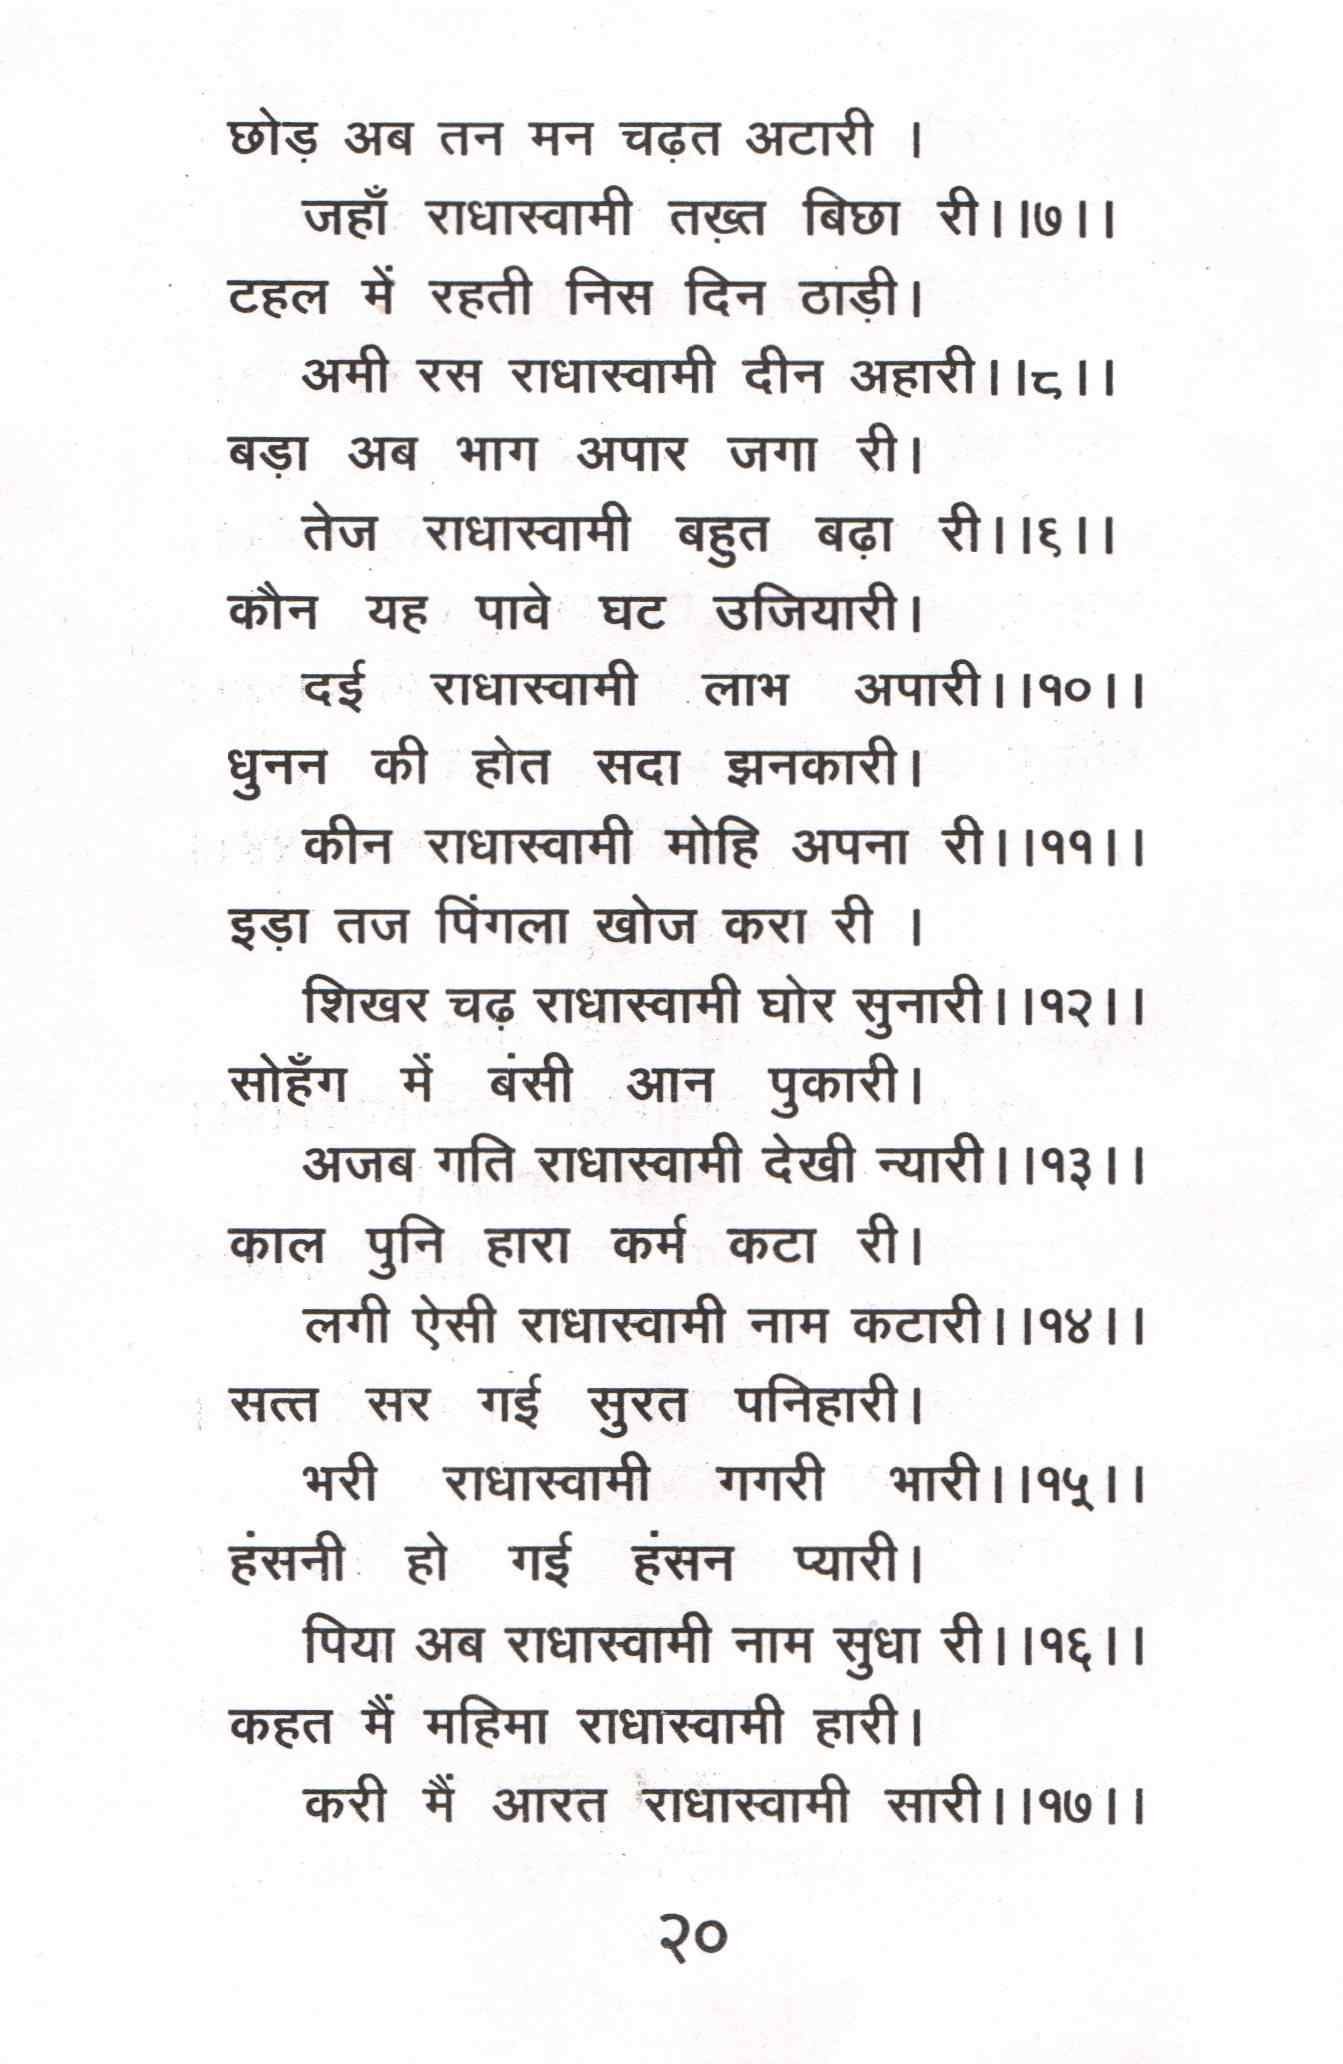 छोड़ अब तन मन चढ़त अटारी ।
जहाँ राधास्वामी तख़्त बिछा री।।७।।
टहल में रहती निस दिन ठाड़ी।
अमी रस राधास्वामी दीन अहारी।।८।।
बड़ा अब भाग अपार जगा री।
तेज राधास्वामी बहुत बढ़ा री।।९।।
कौन यह पावे घट उजियारी।
दई राधास्वामी लाभ अपारी।।१०।।
धुनन की होत सदा झनकारी।
कीन राधास्वामी मोहि अपना री।।११।।
इड़ा तज पिंगला खोज करा री ।
शिखर चढ़ राधास्वामी घोर सुनारी।।१२।।
सोहँग में बंसी आन पुकारी।
अजब गति राधास्वामी देखी न्यारी।।१३।।
काल पुनि हारा कर्म कटा री।
लगी ऐसी राधास्वामी नाम कटारी।।१४।।
सत्त सर गई सुरत पनिहारी।
भरी राधास्वामी गगरी भारी।।१५।।
हंसनी हो गई हंसन प्यारी।
पिया अब राधास्वामी नाम सुधा री।।१६।।
कहत मैं महिमा राधास्वामी हारी।
करी मैं आरत राधास्वामी सारी।।१७।।
२०